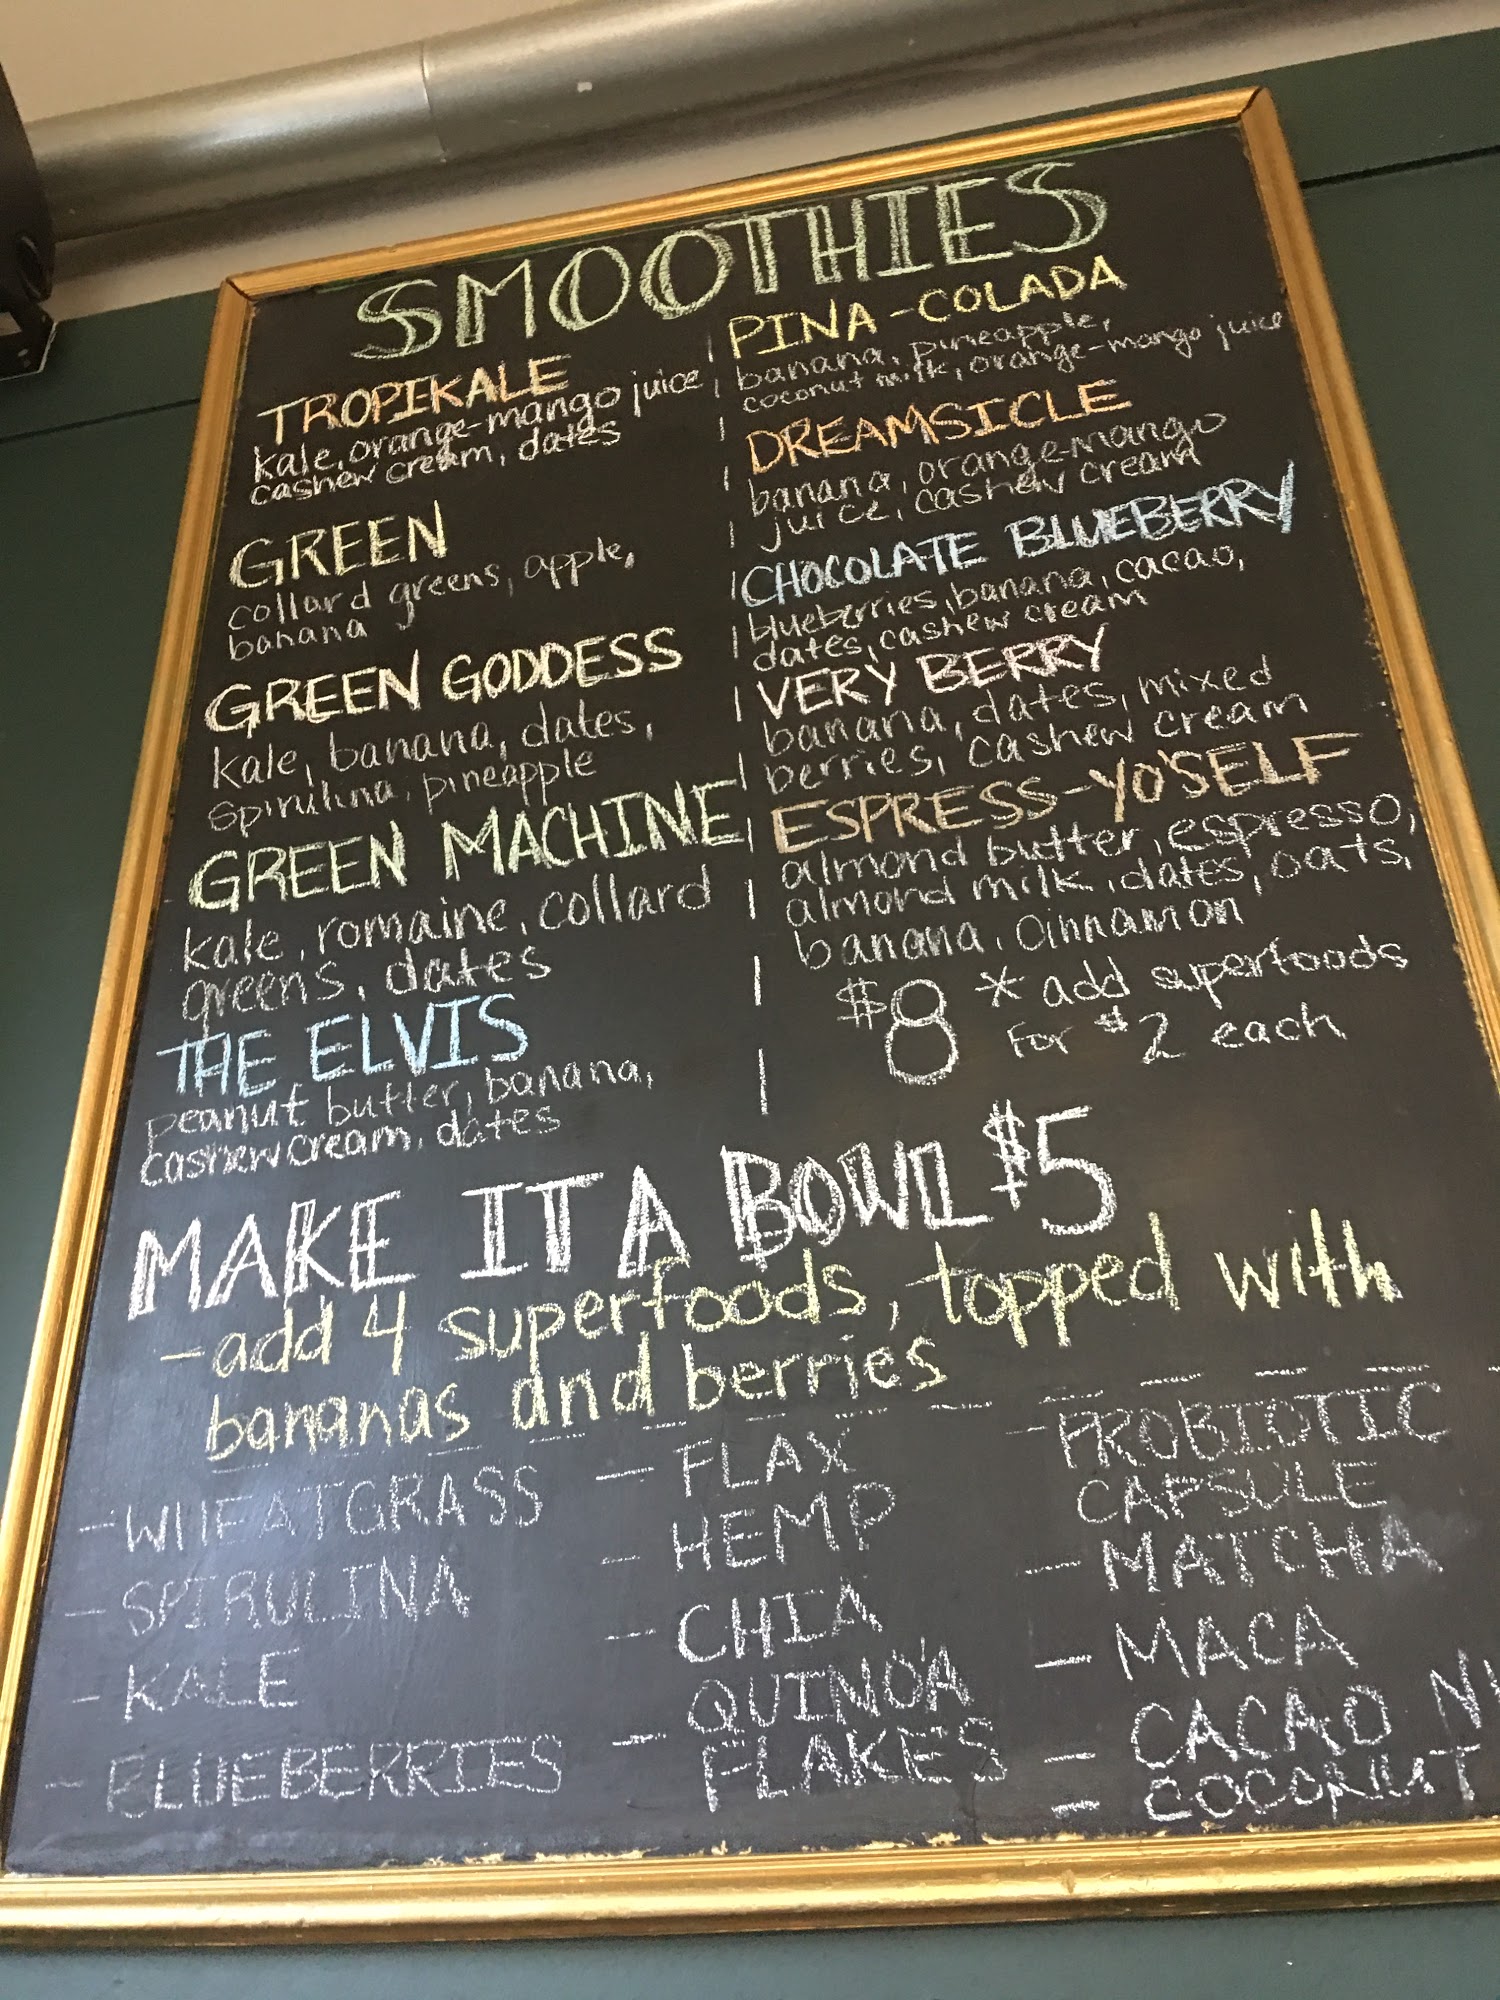 SMOOTHIES
TROPIKALE
kale, orange-mango juice,
cashew cream, dates
GREEN
collard greens, apple,
banana
GREEN GODDESS
kale, banana, dates,
spirulina, pineapple
GREEN MACHINE
kale, romaine, collard
greens, dates
THE ELVIS
peanut butter, banana,
cashew cream, dates
PINA-COLADA
banana, pineapple,
coconut milk, orange-mango juice
DREAMSICLE
banana, orange-mango
juice, cashew cream
CHOCOLATE BLUEBERRY
blueberries, banana, cacao,
dates, cashew cream
VERY BERRY
banana, dates, mixed
berries, cashew cream
ESPRESS-YO'SELF
almond butter, espresso,
almond milk, dates, oats,
banana, cinnamon
$8 * add superfoods
for $2 each
MAKE IT A BOWL $5
- add 4 superfoods, topped with
bananas and berries
- WHEATGRASS
- SPIRULINA
- KALE
- BLUEBERRIES
- FLAX
- HEMP
- CHIA
- QUINOA
FLAKES
- PROBIOTIC
CAPSULE
- MATCHA
- MACA
- CACAO
- COCONUT